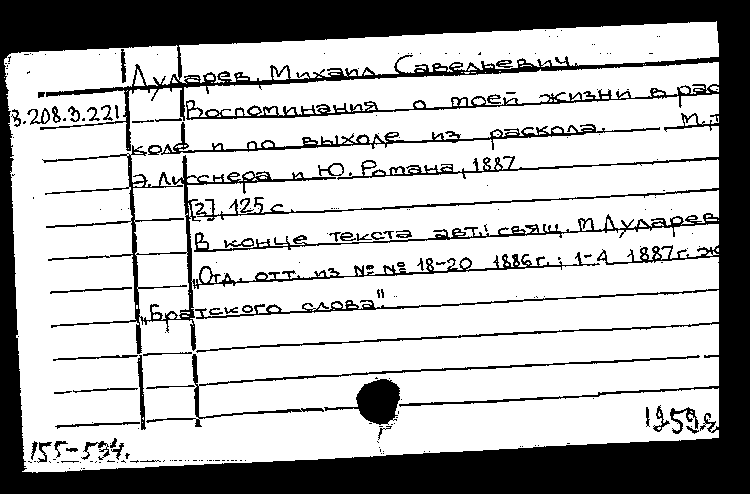 Дударев, Михаил Савельевич.
З.208.3.221. Воспоминания о моей жизни в рас
коле и по выходе из раскола. М., т
Э. Лисснера и Ю. Романа, 1887
[2], 125 с.
В конце текста авт.: свящ. М Дударев
„Отд. отт. из №№ 18-20 1886 г.; 1-4 1887 г. ж
„Братского слова".
155-594.